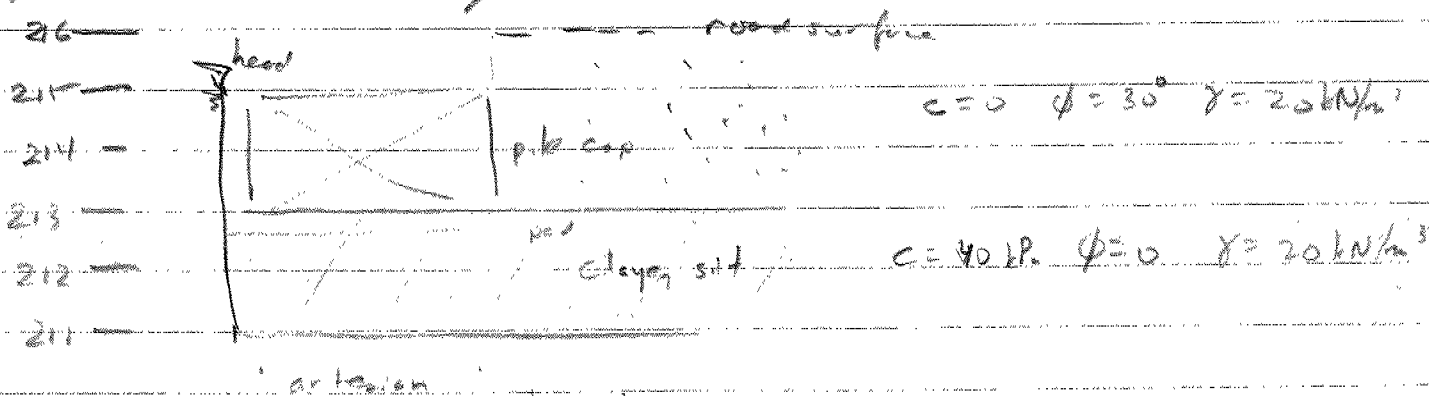 216 road surface
head
215 c = 0 φ = 30° γ = 20 kN/m³
214 pile cap
213
pad
212 clayey silt c = 40 kPa φ = 0 γ = 20 kN/m³
211
artesian